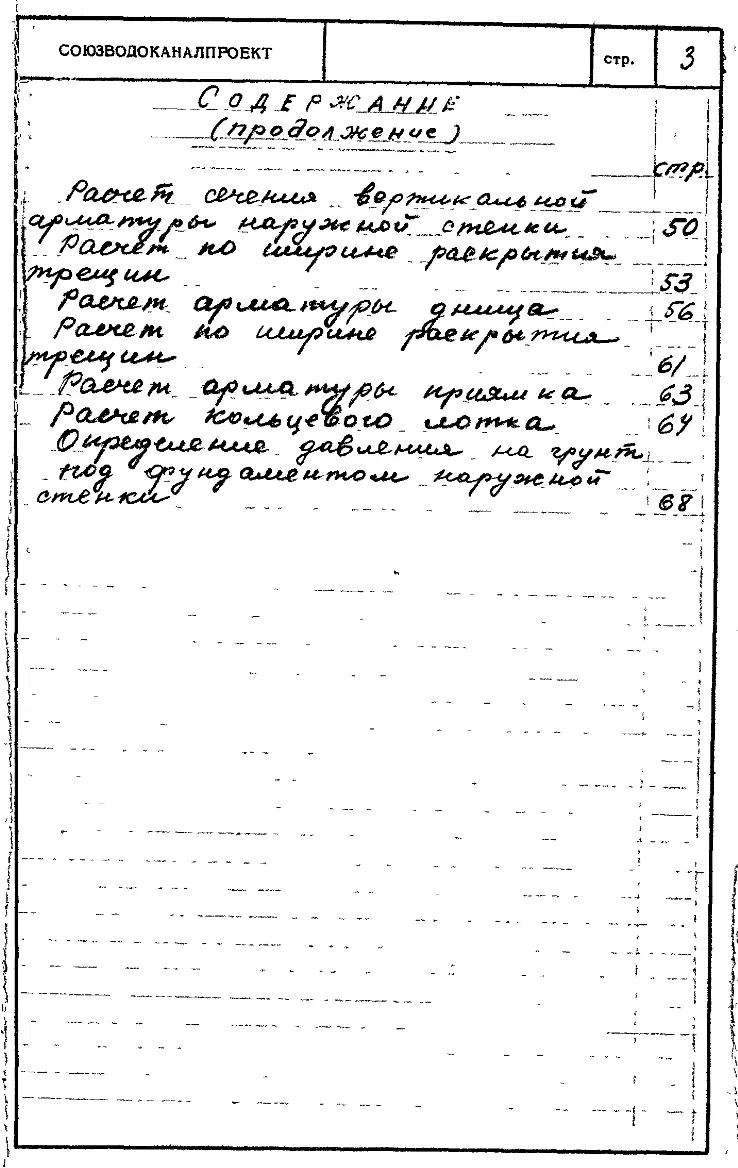 СОЮЗВОДОКАНАЛПРОЕКТ стр. 3
СОДЕРЖАНИЕ
(продолжение)
стр.
Расчет сечения вертикальной
арматуры наружной стенки 50
Расчёт по ширине раскрытия
трещин 53
Расчет арматуры днища 56
Расчет по ширине раскрытия
трещин 61
Расчет арматуры приямка 63
Расчет кольцевого лотка 64
Определение давления на грунт
под фундаментом наружной
стенки 68